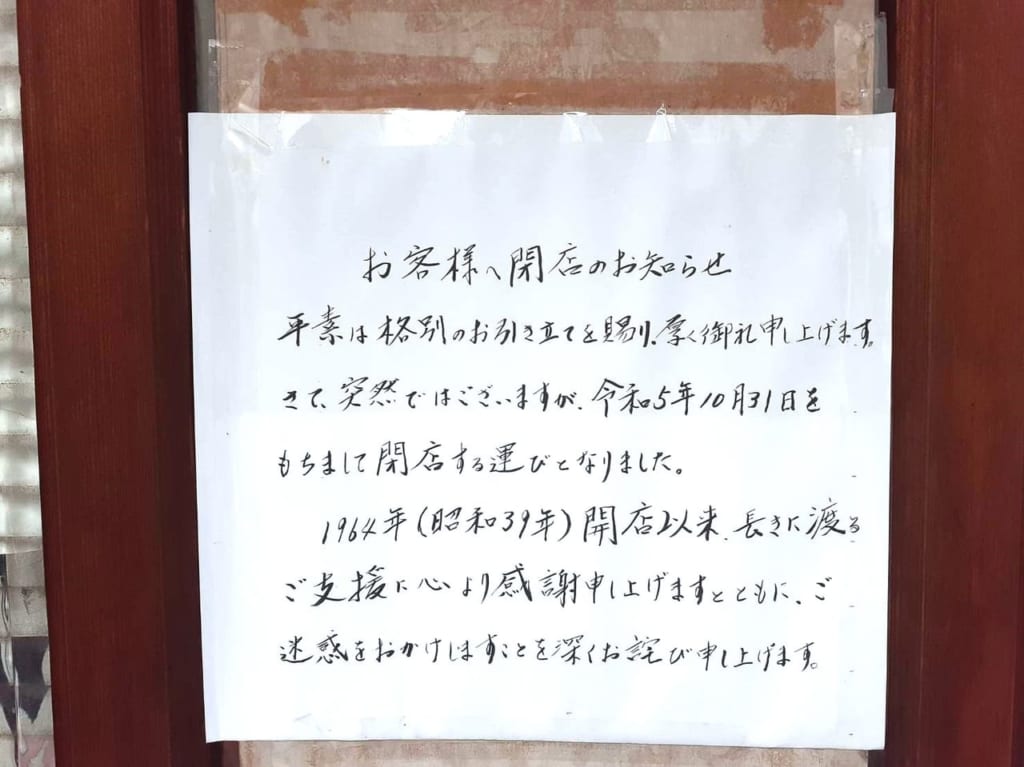 お客様へ閉店のお知らせ
平素は格別のお引き立てを賜り、厚く御礼申し上げます。
さて、突然ではございますが、令和5年10月31日を
もちまして閉店する運びとなりました。
1964年(昭和39年)開店以来、長きに渡る
ご支援に心より感謝申し上げますとともに、ご
迷惑をおかけしますことを深くお詫び申し上げます。